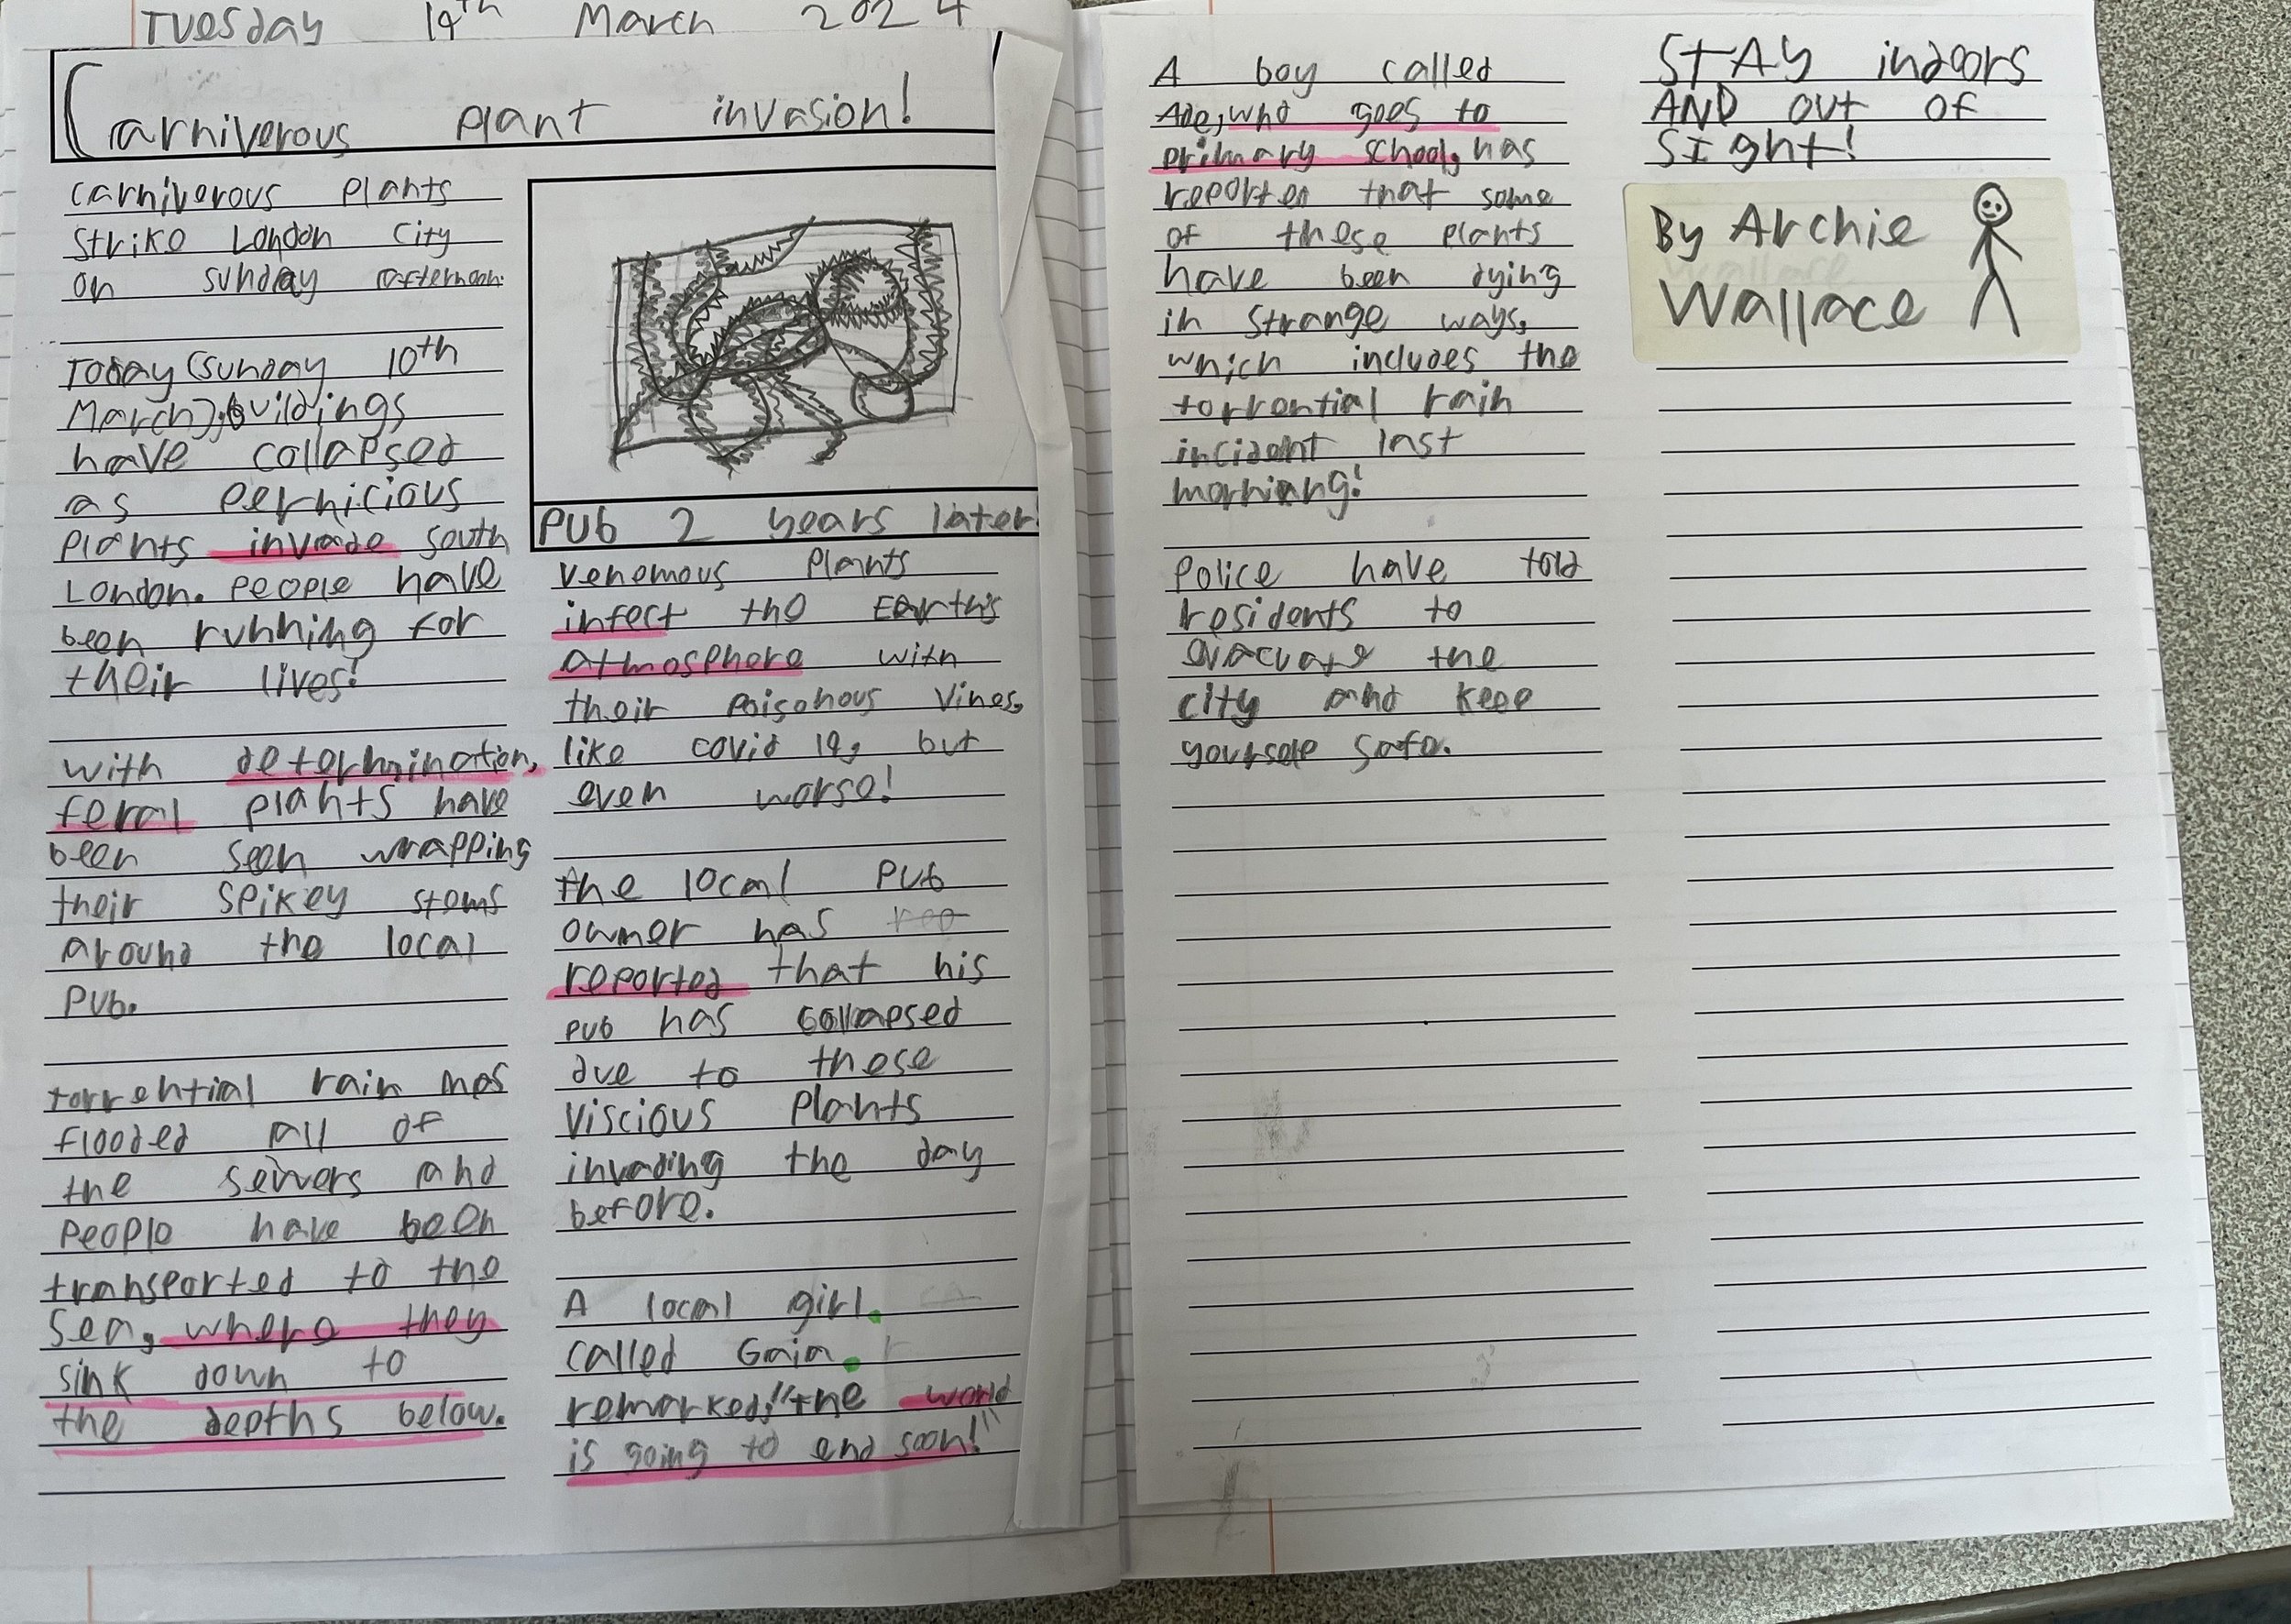 Tuesday 19th March 2024
Carniverous plant invasion!
Carniverous plants
strike London City
on sunday afternoon.
Today (sunday 10th
March), buildings
have collapsed
as pernicious
plants invade south
London. People have
been running for
their lives!
with determination,
feral plants have
been seen wrapping
their spikey stems
around the local
pub.
torrential rain has
flooded all of
the sewers and
people have been
transported to the
sea, where they
sink down to
the depths below.
Pub 2 years later!
venemous plants
infect the Earth's
atmosphere with
their poisonous vines,
like covid 19, but
even worse!
the local pub
owner has
reported that his
pub has collapsed
due to these
viscious plants
invading the day
before.
A local girl,
called Gaia,
remarked, "the world
is going to end soon!"
A boy called
Ade, who goes to
primary school, has
reported that some
of these plants
have been dying
in strange ways,
which includes the
torrential rain
incident last
morning!
Police have told
residents to
evacuate the
city and keep
yourself safe.
STAY indoors
AND out of
SIght!
By Archie
Wallace